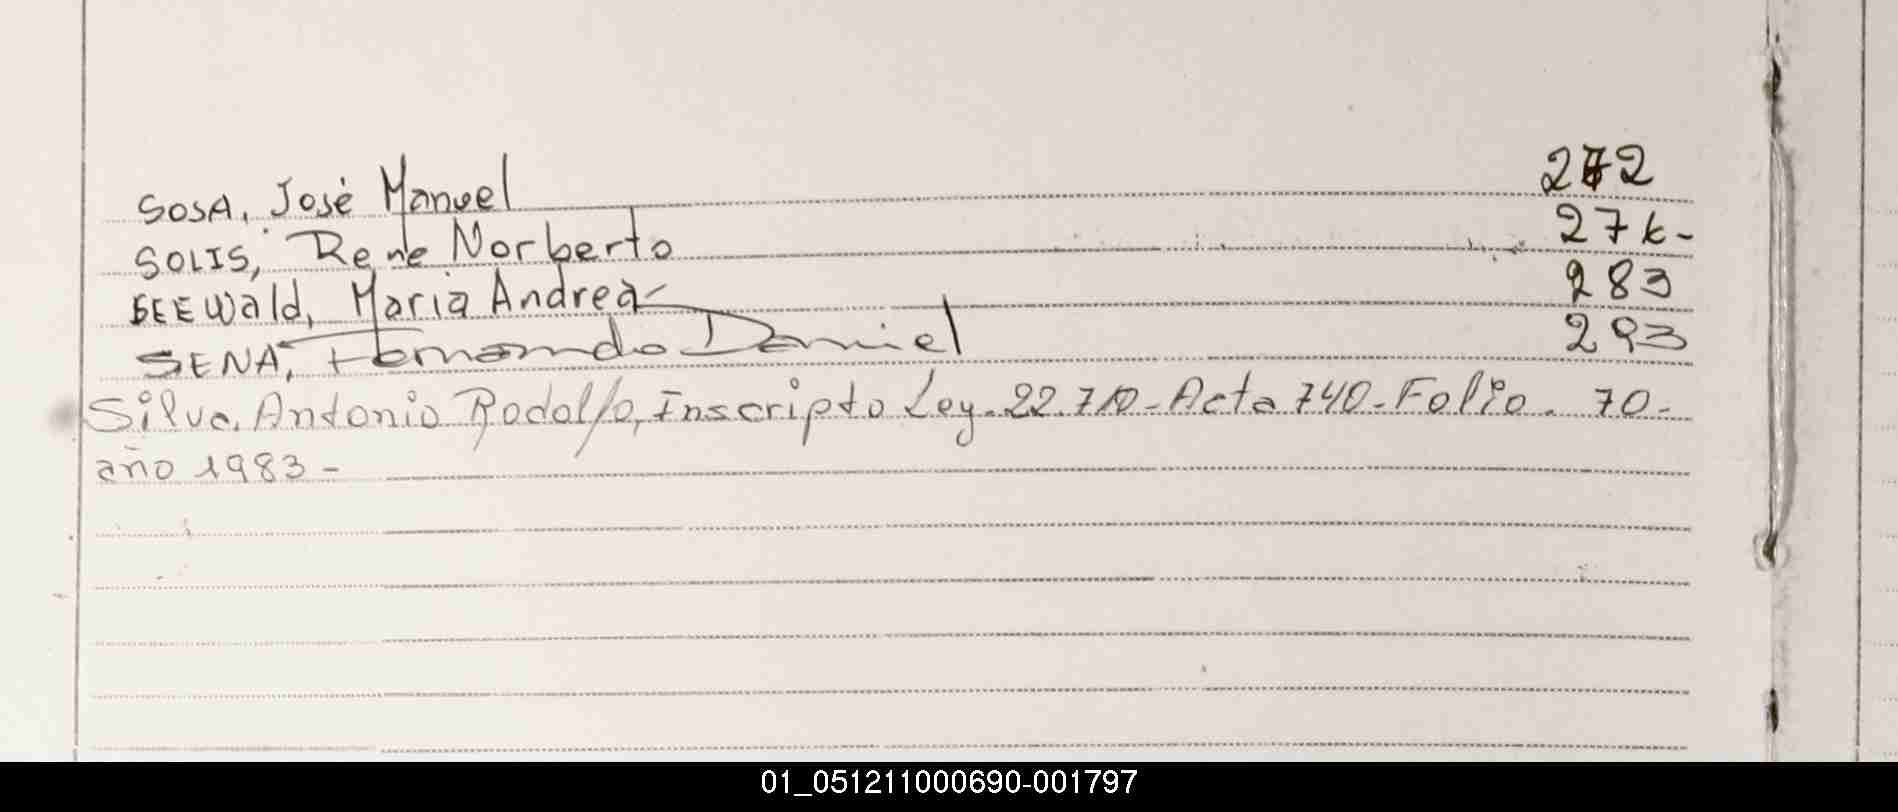 SOSA, José Manuel 272
SOLIS, Rene Norberto 27
SEEWald, Maria Andrea 283
SENA, Fernando Daniel 293
Silva, Antonio Rodolfo, Inscripto Ley. 22.710 - Acta 740 - Folio. 70 -
año 1983 -
01_051211000690-001797